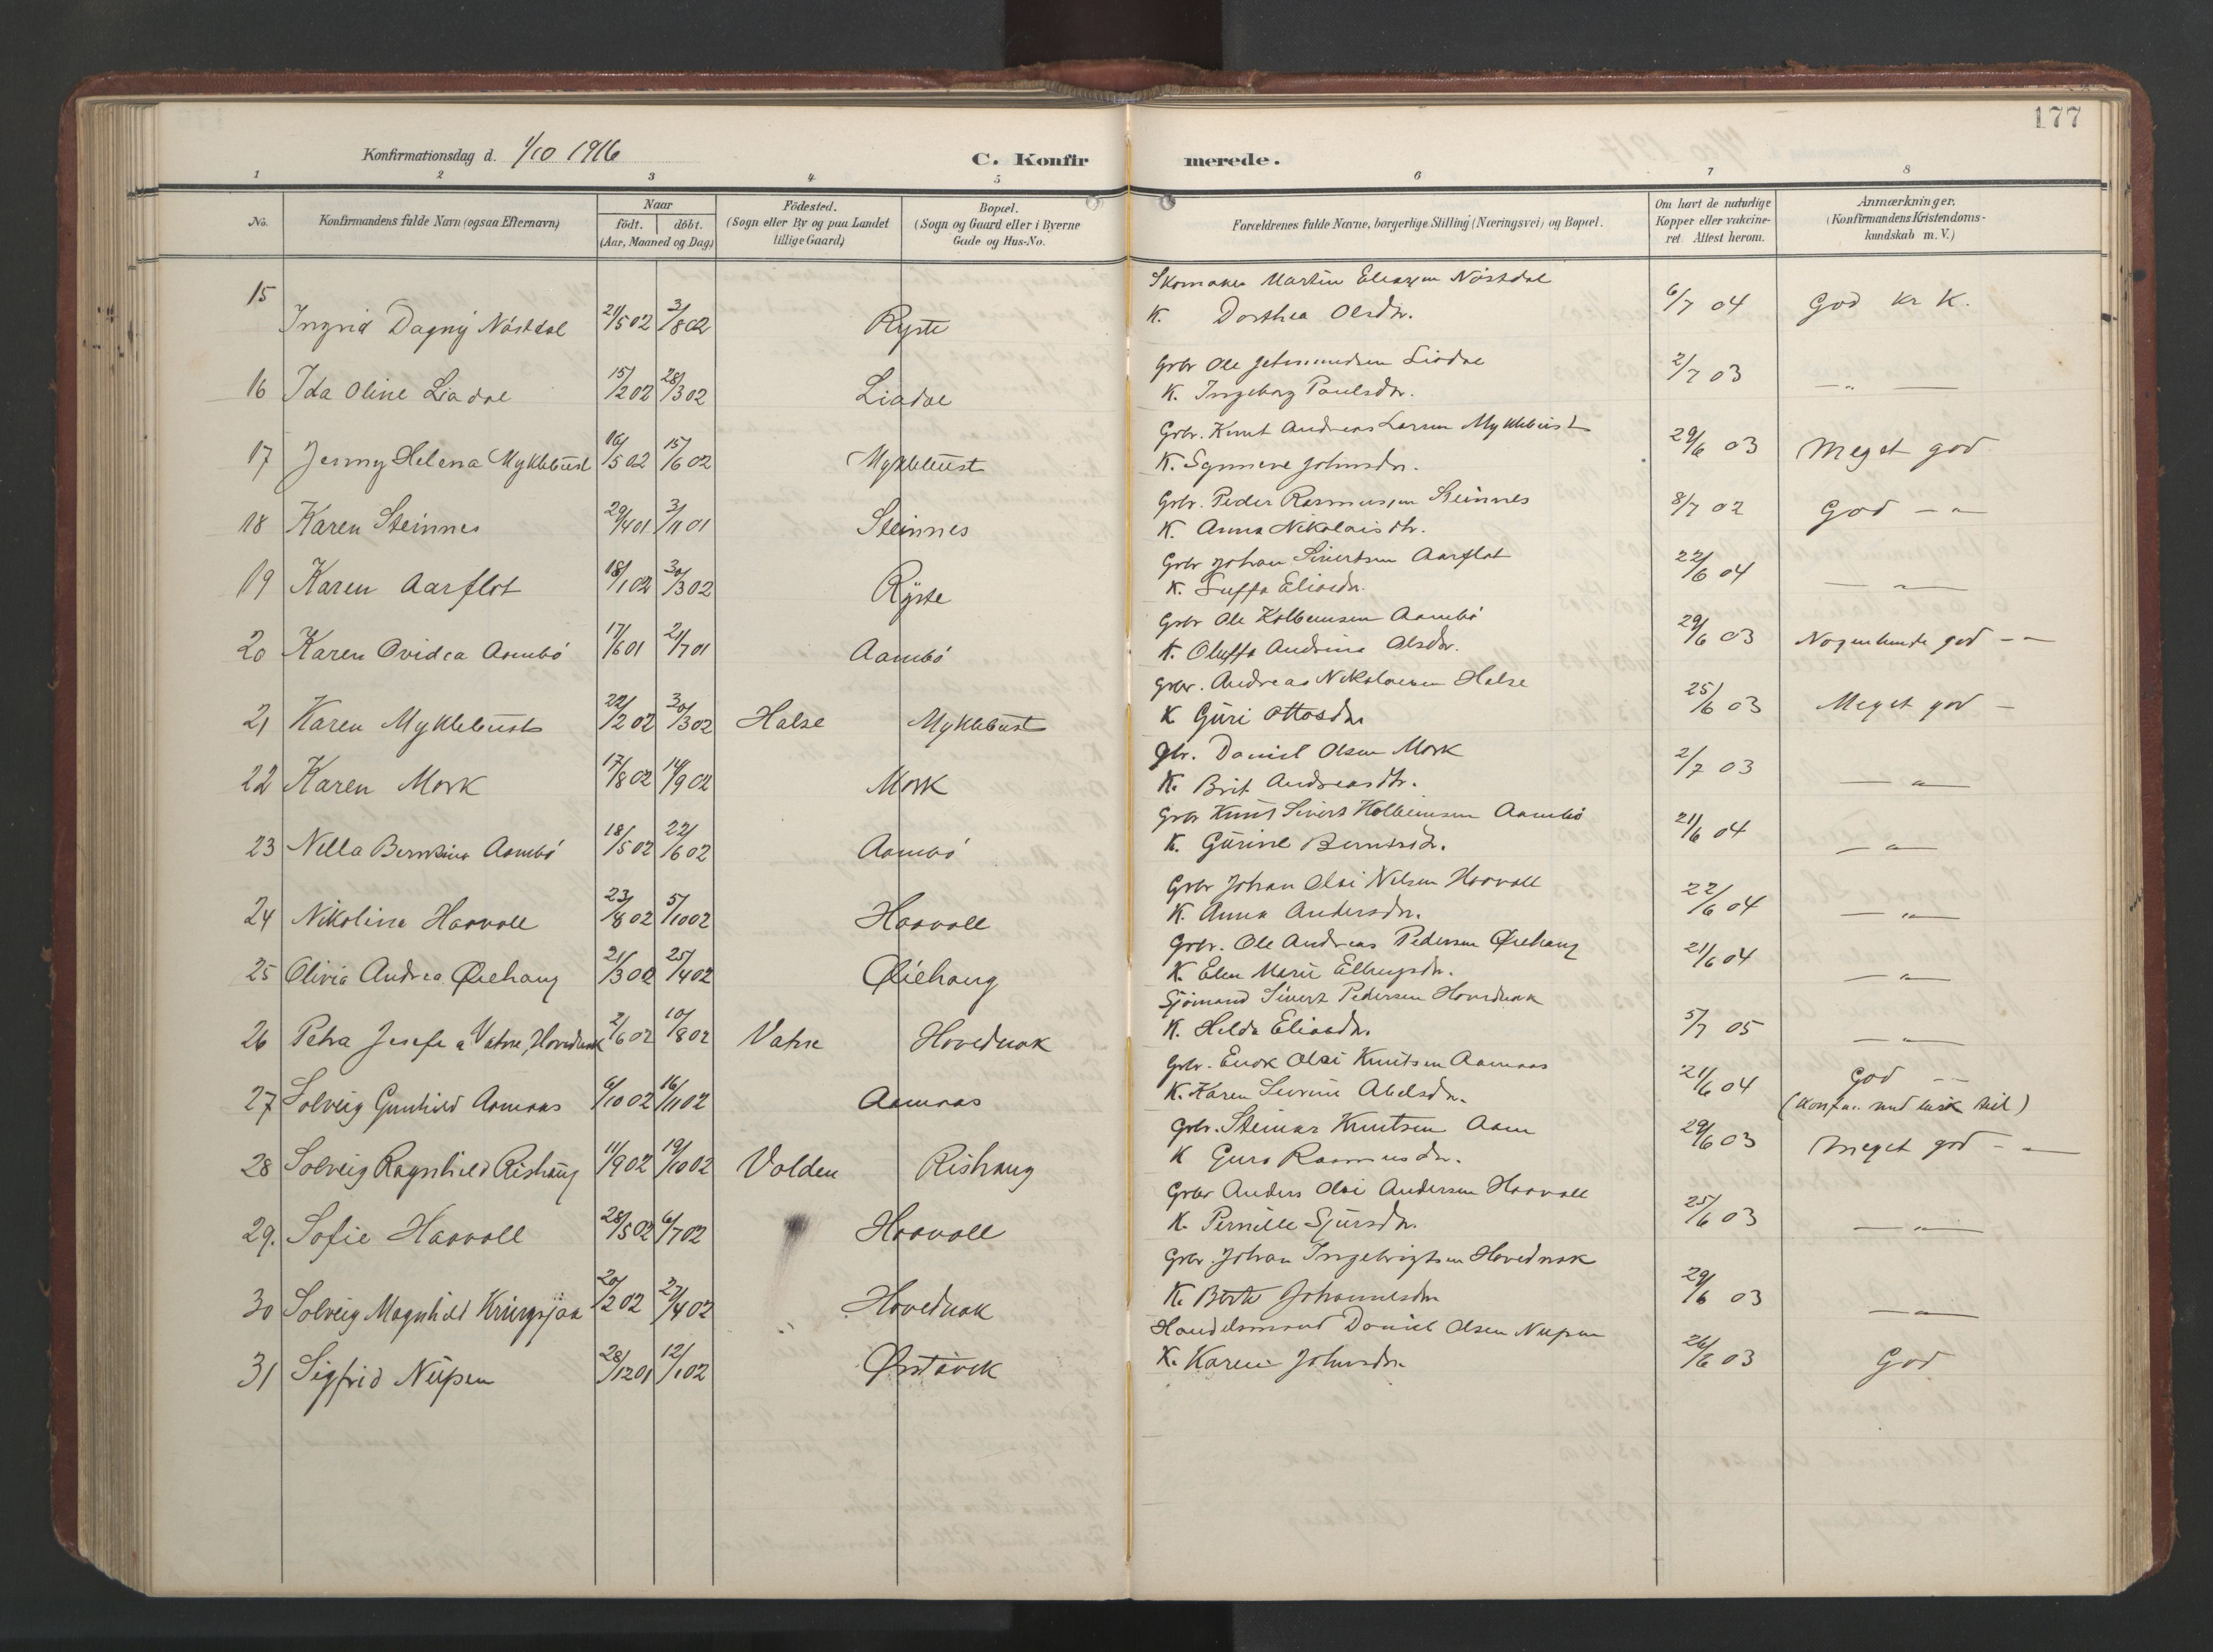 177
Konfirmationsdag d. 1/10 1916 C. Konfir merede.
1 2 3 4 5 6 7 8
No. Konfirmandens fulde Navn (ogsaa Efternavn) Naar födt. döbt. (Aar, Maaned og Dag) Födested. (Sogn eller By og paa Landet tillige Gaard) Bopæl. (Sogn og Gaard eller i Byerne Gade og Hus-No. Forældrenes fulde Navne, borgerlige Stilling (Næringsvei) og Bopæl. Om havt de naturlige Kopper eller vakcineret. Attest herom. Anmærkninger. (Konfirmandens Kristendomskundskab m. V.)
Skomaker Martin Eliassen Nöstdal
15 Ingrid Dagny Nöstdal 21/5 02 3/8 02 Ryste K. Dorthea Olsdr. 6/7 04 God kr K.
Grbr Ole Jetmundsen Liadal
16 Ida Oline Liadal 15/2 02 28/3 02 Liadal K. Ingeborg Paulsdr. 2/7 03 — " —
Grbr. Knut Andreas Larsen Myklebust
17 Jenny Helena Myklebust 16/5 02 15/6 02 Myklebust K. Synneve Johnsdr. 29/6 03 Meget god
Grbr. Peder Rasmussen Steinnes
18 Karen Steinnes 29/4 01 3/11 01 Steinnes K. Anna Nikolaisdtr. 8/7 02 God — "
Grbr Johan Sivertsen Aarflot
19 Karen Aarflot 18/1 02 30/3 02 Ryste K. Eliasdr. 22/6 04 — " —
Grbr Ole Kolbeinsen Aambö
20 Karen Ovidea Aambö 17/6 01 21/7 01 Aambö K. Oluffa Andrina Olsdr. 29/6 03 Nogenlunde god — —
Grbr. Andreas Nikolaisen Halse
21 Karen Myklebust 22/2 02 30/3 02 Halse Myklebust K Guri Ottosdr 25/6 03 Meget god —
Gbr. Daniel Olsen Mork
22 Karen Mork 17/8 02 14/9 02 Mork K. Brit Andreasdtr. 2/7 03 — " —
Grbr Knut Sivert Kolbeinsen Aambö
23 Nella Berntina Aambö 18/5 02 22/6 02 Aambö K. Gurine Berntsdr. 21/6 04 — " —
Grbr Johan Olai Nilsen Haavoll
24 Nikolina Haavoll 23/8 02 5/10 02 Haavoll K. Anna Andersdr. 22/6 04 — " —
Grbr. Ole Andreas Pedersen Øiehaug
25 Olivia Andrea Øiehaug 21/3 02 25/4 02 Øiehaug K. Elen Marie Ellingsdr. 21/6 04 — " —
Sjömand Sivert Pedersen Hovednak
26 Petra Josefa Vatne, Hovednak 2/6 02 10/8 02 Vatne Hovednak K. Hilda Eliasdr. 5/7 05 — " —
Grbr. Enok Olai Knutsen Aamaas
27 Solveig Gunhild Aamaas 6/10 02 16/11 02 Aamaas K. Karen Severine Abelsdr. 21/6 04 God — —
Grbr. Steinar Knutsen Aam
28 Solveig Ragnhild Rishaug 11/9 02 19/10 02 Volden Rishaug K Guro Rasmusdr. 29/6 03 Meget god — —
Grbr Anders Olai Andersen Haavoll
29. Sofie Haavoll 28/5 02 6/7 02 Haavoll K. Pernille Sjursdr. 25/6 03 — " —
Grbr. Johan Ingebrigtsen Hovednak
30 Solveig Magnhild Kringsjaa 20/2 02 27/4 02 Hovednak K. Berte Johannesdr 29/6 03 — " —
Handelsmand Daniel Olsen Nupen
31 Sigfrid Nupen 28/12 01 12/1 02 Ørstavik K. Karen Johnsdr. 26/6 03 God